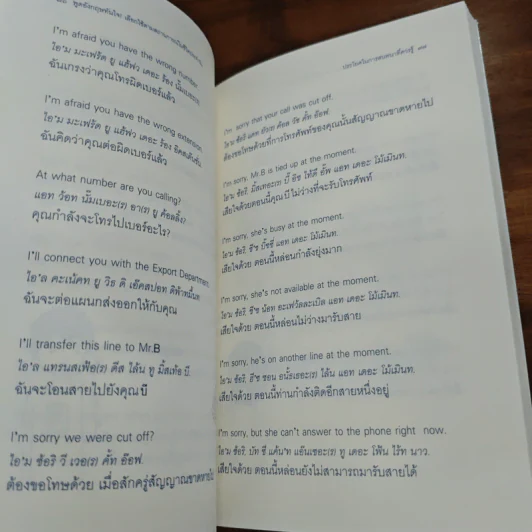 I'm afraid you have the wrong number.
ไอ'ม มะเฟร็ด ยู แฮ็ฟว เดอะ ร็อง นั้มเบอะ(ร)
ฉันเกรงว่าคุณโทรผิดเบอร์แล้ว
I'm afraid you have the wrong extension.
ไอ'ม มะเฟร็ด ยู แฮ็ฟว เดอะ ร็อง
ฉันคิดว่าคุณต่อผิดเบอร์แล้ว
At what number are you calling?
แอท ว้อท นั๊มเบอะ(ร) อา(ร) ยู ค้อลลิ่ง
คุณกำลังจะโทรไปเบอร์อะไร?
I'll connect you with the Export Department.
ไอ'ล คะเน้คท ยู วิธ ดิ เอ๊คสปอท
ฉันจะต่อแผนกส่งออกให้กับคุณ
I'll transfer this line to Mr.B
ไอ'ล แทรนสเฟ้อ(ร) ดีส ไล้น ทู มิ้สเท้อ บี
ฉันจะโอนสายไปยังคุณบี
I'm sorry we were cut off?
ไอ'ม ซ้อริ วี เวอ(ร) คั้ท อ๊อฟ.
ต้องขอโทษด้วย เมื่อสักครู่สัญญาณขาดหายไป
I'm sorry that your call was cut off.
ไอ'ม ซ้อริ แดท ย้อเท ค้อล ว้อ คั้ท อ๊อฟ.
ต้องขอโทษด้วยที่การโทรศัพท์ของคุณนั้นสัญญาณขาดหายไป
I'm sorry, Mr.B is tied up at the moment.
ไอ'ม ซ้อริ, มิ้สเทอะ(ร) บี้ อีซ ไท้ดี อั๊พ แอท เดอะ โม้เม้นท.
เสียใจด้วยตอนนี้คุณบีไม่ว่างที่จะรับโทรศัพท์
I'm sorry, she's busy at the moment.
ไอ'ม ซ้อริ, ชี'ซ บั้ซซี่ แอท เดอะ โม้เม้นท.
เสียใจด้วย ตอนนี้หล่อนกำลังยุ่งมาก
I'm sorry, she's not available at the moment.
ไอ'ม ซ้อริ, ชี'ซ น้อท อะเฟวัลละเบิล แอท เดอะ โม้เม้นท.
เสียใจด้วย ตอนนี้หล่อนไม่ว่างมารับสาย
I'm sorry, he's on another line at the moment.
ไอ'ม ซ้อริ, ฮี'ซ ออน อนั้ธเธอะ(ร) ไล้น แอท เดอะ โม้เม้นท.
เสียใจด้วย ตอนนี้ท่านกำลังติดอีกสายหนึ่งอยู่
I'm sorry, but she can't answer to the phone right now.
ไอ'ม ซ้อริ, บัท ชี แค้น'ท แอ๊นเซอะ(ร) ทู เดอะ โฟ้น ไร้ท นาว.
เสียใจด้วย ตอนนี้หล่อนยังไม่สามารถมารับสายได้